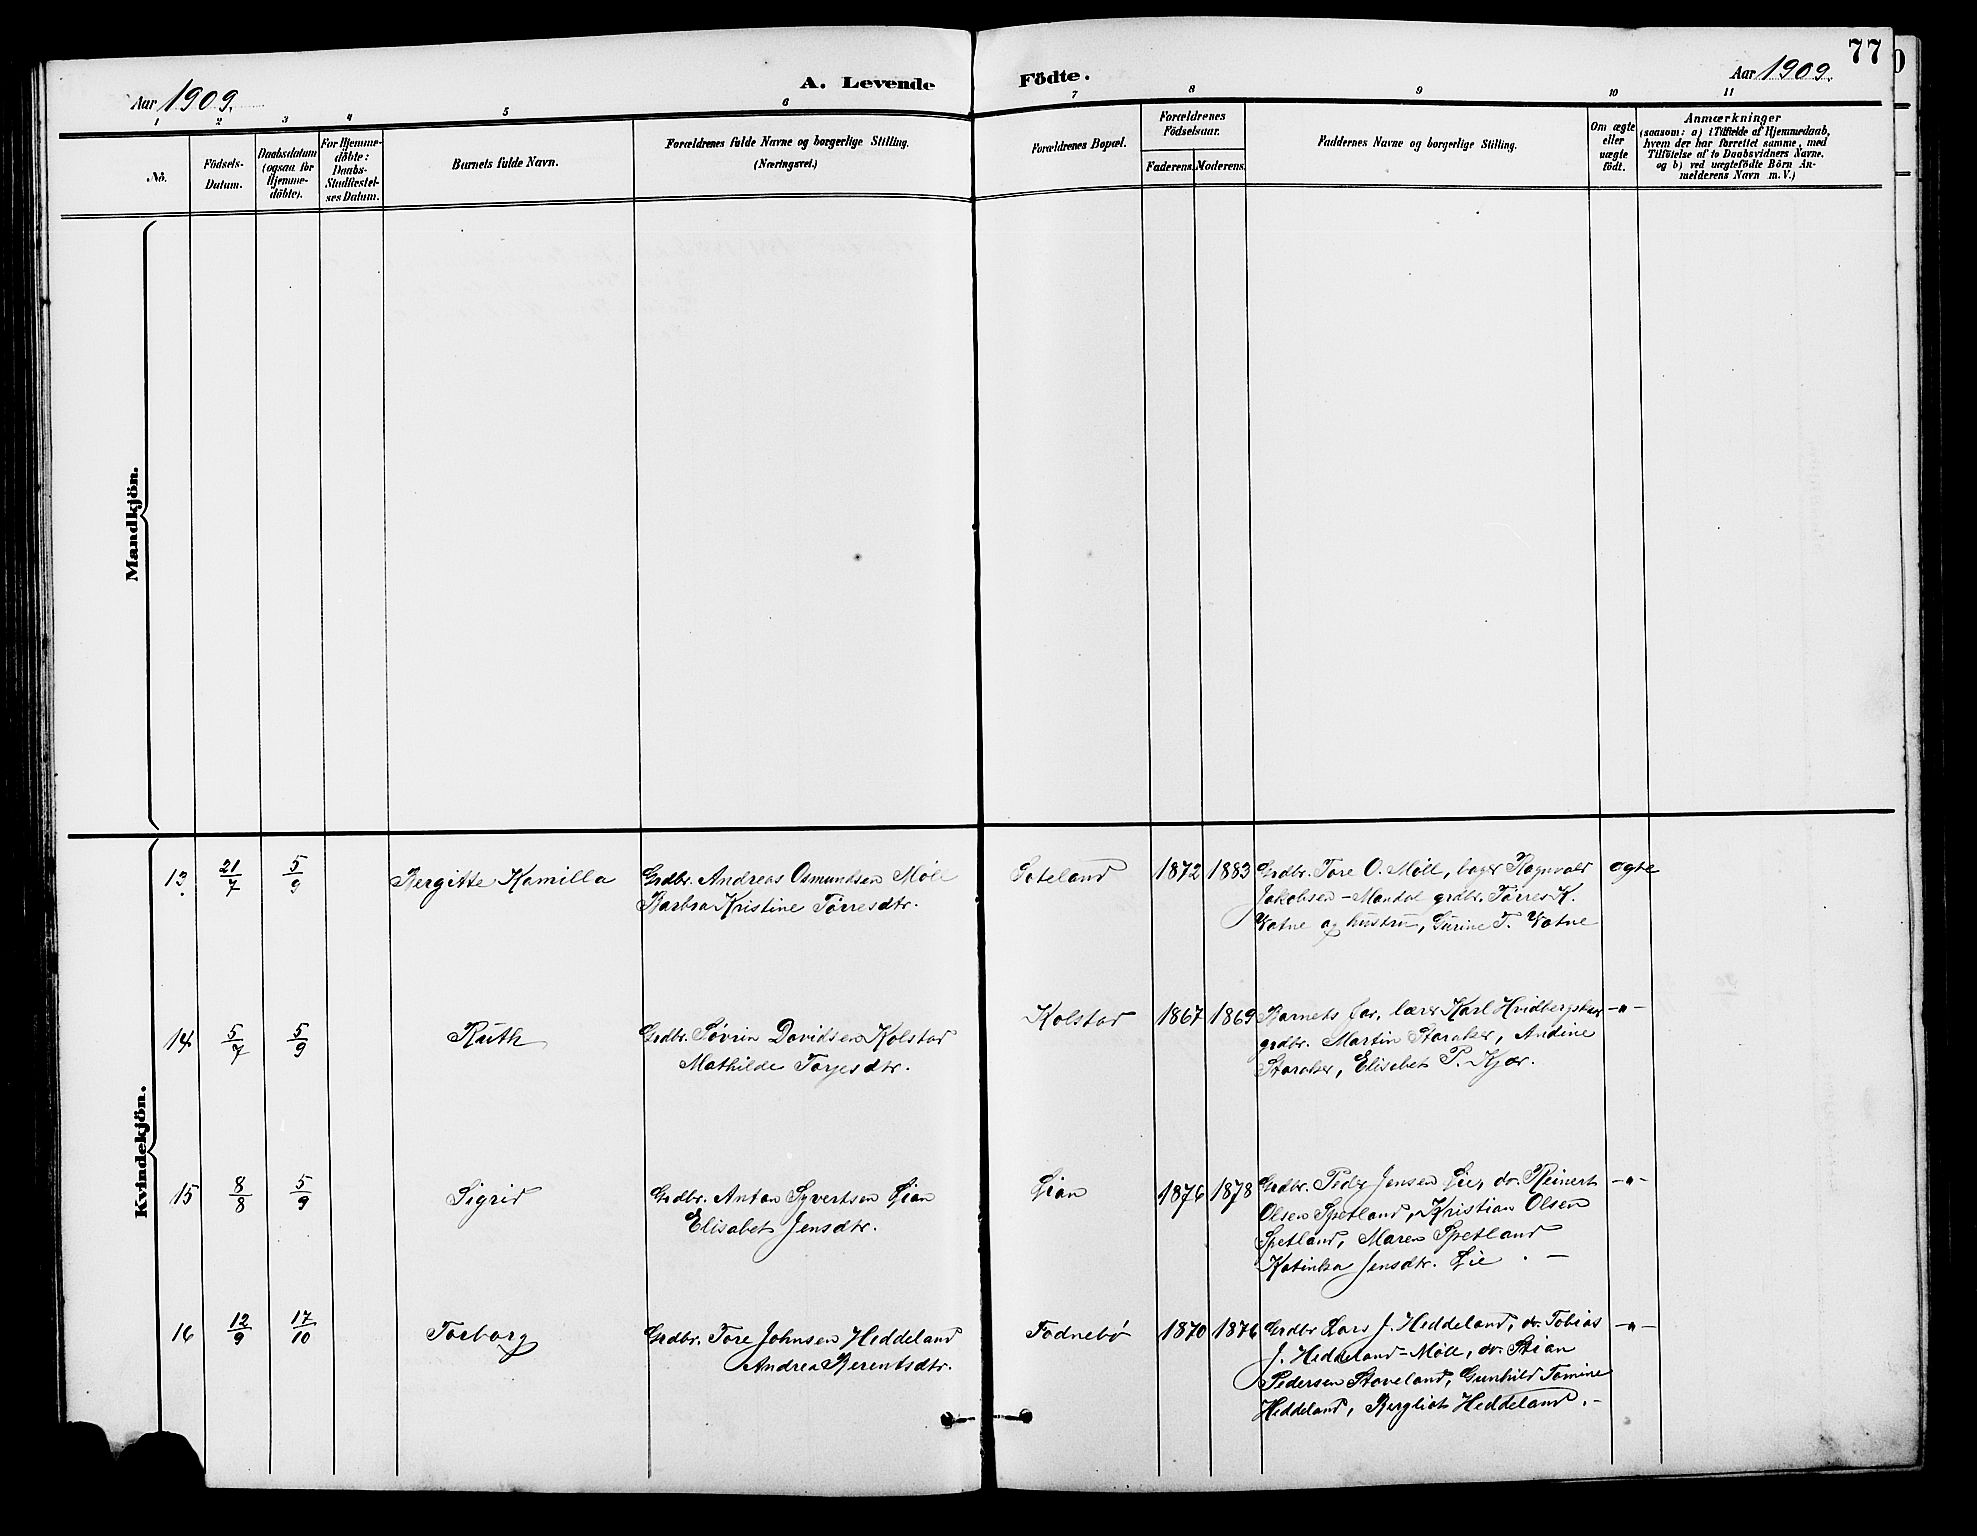 77
Aar 1909.
A. Levende Födte.
Aar 1909.
1 2 3 4 5 6 7 8 9 10 11
No.
Födsels-
Datum.
Daabsdatum
(ogsaa for
Hjemme-
döbte).
For Hjemme-
döbte:
Daabs-
Stadfæstel-
ses Datum.
Barnets fulde Navn.
Forældrenes fulde Navne og borgerlige Stilling.
(Næringsvei.)
Forældrenes Bopæl.
Forældrenes
Födselsaar.
Faderens. Moderens.
Faddernes Navne og borgerlige Stilling.
Om ægte
eller
uægte
födt.
Anmærkninger
(saasom: a) i Tilfælde af Hjemmedaab,
hvem der har forrettet samme, med
Tilföielse af to Daabsvidners Navne.
og b) ved uægtefödte Börn An-
melderens Navn m. V.)
Mandkjön.
Kvindekjön.
13. 21/7 5/9 Bergitte Kamilla
Grdbr. Andreas Osmundsen Møll
Barbra Kristine Tørresdtr.
Soteland 1872 1883
Grdbr. Tore O. Møll, bager Ragnvald
Jakobsen-Mandal grdbr. Tørres K.
Vatne og hustru, Surine T. Vatne
ægte
14 5/7 5/9 Ruth
Grdbr. Søvrin Davidsen Kolstad
Mathilde Torjesdtr.
Kolstad 1867 1869
Barnets far, lærer Karl
grdbr. Martin Storaker, Andine
Storaker, Elisabet P. Kjær.
-"-
15 8/8 5/9 Sigrid
Grdbr. Anton Syvertsen Lian
Elisabet Jensdtr.
Lian 1876 1878
Grdbr. Peder Jensen Lie, do. Reinert
Olsen Spetland, Kristian Olsen
Spetland, Maren Spetland
Katinka Jensdtr. Lie . -
-"-
16 12/9 17/10 Torborg
Grdbr. Tore Johnsen Heddeland
Andrea Berentsdtr.
Fodnebø 1870 1876
Grdbr. Lars J. Heddeland, do. Tobias
J. Heddeland-Møll, do. Stian
Pedersen Stoveland, Gunhild Tomine
Heddeland, Bergliot Heddeland.-
-"-